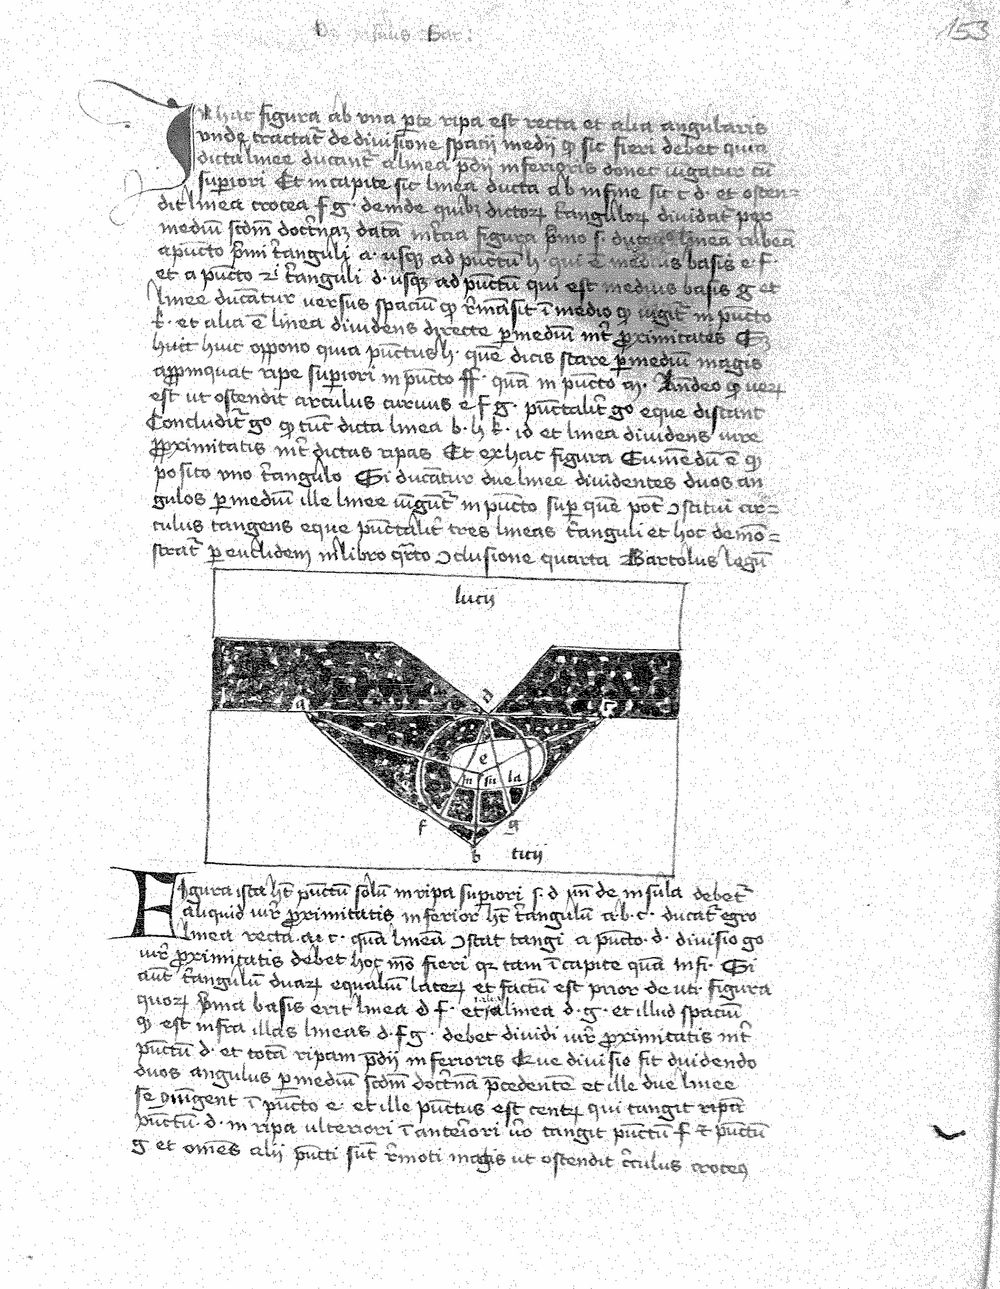 De insulis Bar:
153
In hac figura ab vna pte ripa est recta et alia angularis
vnde tractat de diuisione spacii medii q sic fieri debet quia
dicta linee ducant a linea pdii inferioris donec iugatur cu
superiori Et in capite sic linea ducta ab in fine sit c d. et osten=
dit linea crocea f g. deinde quibz dictoꝝ tanguloꝝ diuidat per
mediu scdm doctnaz data in figura pmo s. linea rubea
a pucto pmi tanguli a. usqz ad puctu h. qui e medius basis e. f.
et a pucto 2i tanguli d. usqz ad puctu qui est medius basis g et
linee ducatur versus spaciu q rmasit i medio q iugit in pucto
k. et alia e linea diuidens directe p mediu int proximitates
huic oppono quia puctus h. que dicis stare p mediu magis
appinquat ripe superiori in pucto ff. qua in pucto m. Ideo q
est ut ostendit circulus curuus e f g. puctalit go eque distant
Concludit go q tuc dicta linea b. h k. id et linea diuidens iure
proximitatis int dictas ripas Et ex hac figura Eumedu e q
posito vno tangulo Si ducatur due linee diuidentes duos an
gulos p mediu ille linee iugut in pucto sup que pot ɔstitui cir=
culus tangens eque puctalit tres lineas tanguli et hoc demo=
strat p euclidem in libro qrto ɔclusione quarta Bartolus legu
lucii
d
a c
e
in su la
f g
b titii
Figura ista ht puctu solu in ripa superiori s. d vn de insula debet
aliquid iur proximitatis inferior ht tangulu a b. c. ducat
linea recta. a. c. qua linea ɔstat tangi a pucto. d. diuisio go
iur proximitatis debet hoc mo fieri qr tam i capite qua infi. Si
aut tangulu duaꝝ equaliu lateꝝ et factu est prior figura
quoꝝ pma basis erit linea d f. et linea d. g. et illud spaciu
q est infra illas lineas d. f g. debet diuidi iur proximitatis int
puctu d. et tota ripam pdii inferioris Que diuisio fit diuidendo
duos angulus p mediu scdm doctna pcedente et ille due linee
se ɔiugent i pucto e. et ille puctus est cent qui tangit ripa
puctu. d. in ripa ulteriori i anteriori uo tangit puctu f et puctu
g et omes alii pucti sut rmoti magis ut ostendit circulus croceus